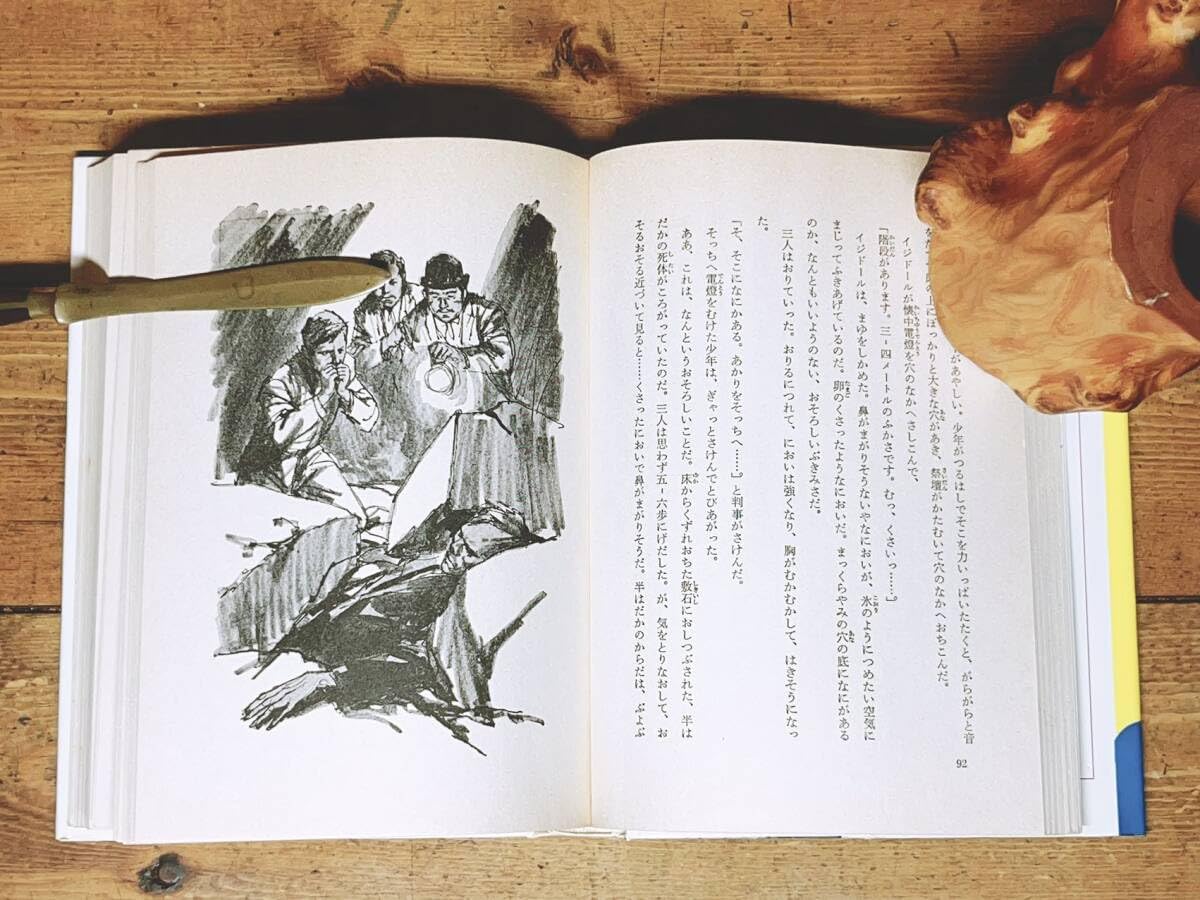 があやしい。少年がつるはしでそこを力いっぱいたたくと、がらがらと音
の上にぽっかりと大きな穴があき、祭壇がかたむいて穴のなかへおちこんだ。
イジドールが懐中電燈を穴のなかへさしこんで、
「階段があります。三-四メートルのふかさです。むっ、くさいっ……。」
イジドールは、まゆをしかめた。鼻がまがりそうないやなにおいが、氷のようにつめたい空気に
まじってふきあげているのだ。卵のくさったようなにおいだ。まっくらやみの穴の底になにがある
のか、なんともいいようのない、おそろしいぶきみさだ。
三人はおりていった。おりるにつれて、においは強くなり、胸がむかむかして、はきそうになっ
た。
「そ、そこになにかある。あかりをそっちへ……。」と判事がさけんだ。
そっちへ電燈をむけた少年は、ぎゃっとさけんでとびあがった。
ああ、これは、なんというおそろしいことだ。床からくずれおちた敷石におしつぶされた、半は
だかの死体がころがっていたのだ。三人は思わず五-六歩にげだした。が、気をとりなおして、お
そるおそる近づいて見ると……くさったにおいで鼻がまがりそうだ。半はだかのからだは、ぶよぶ
92